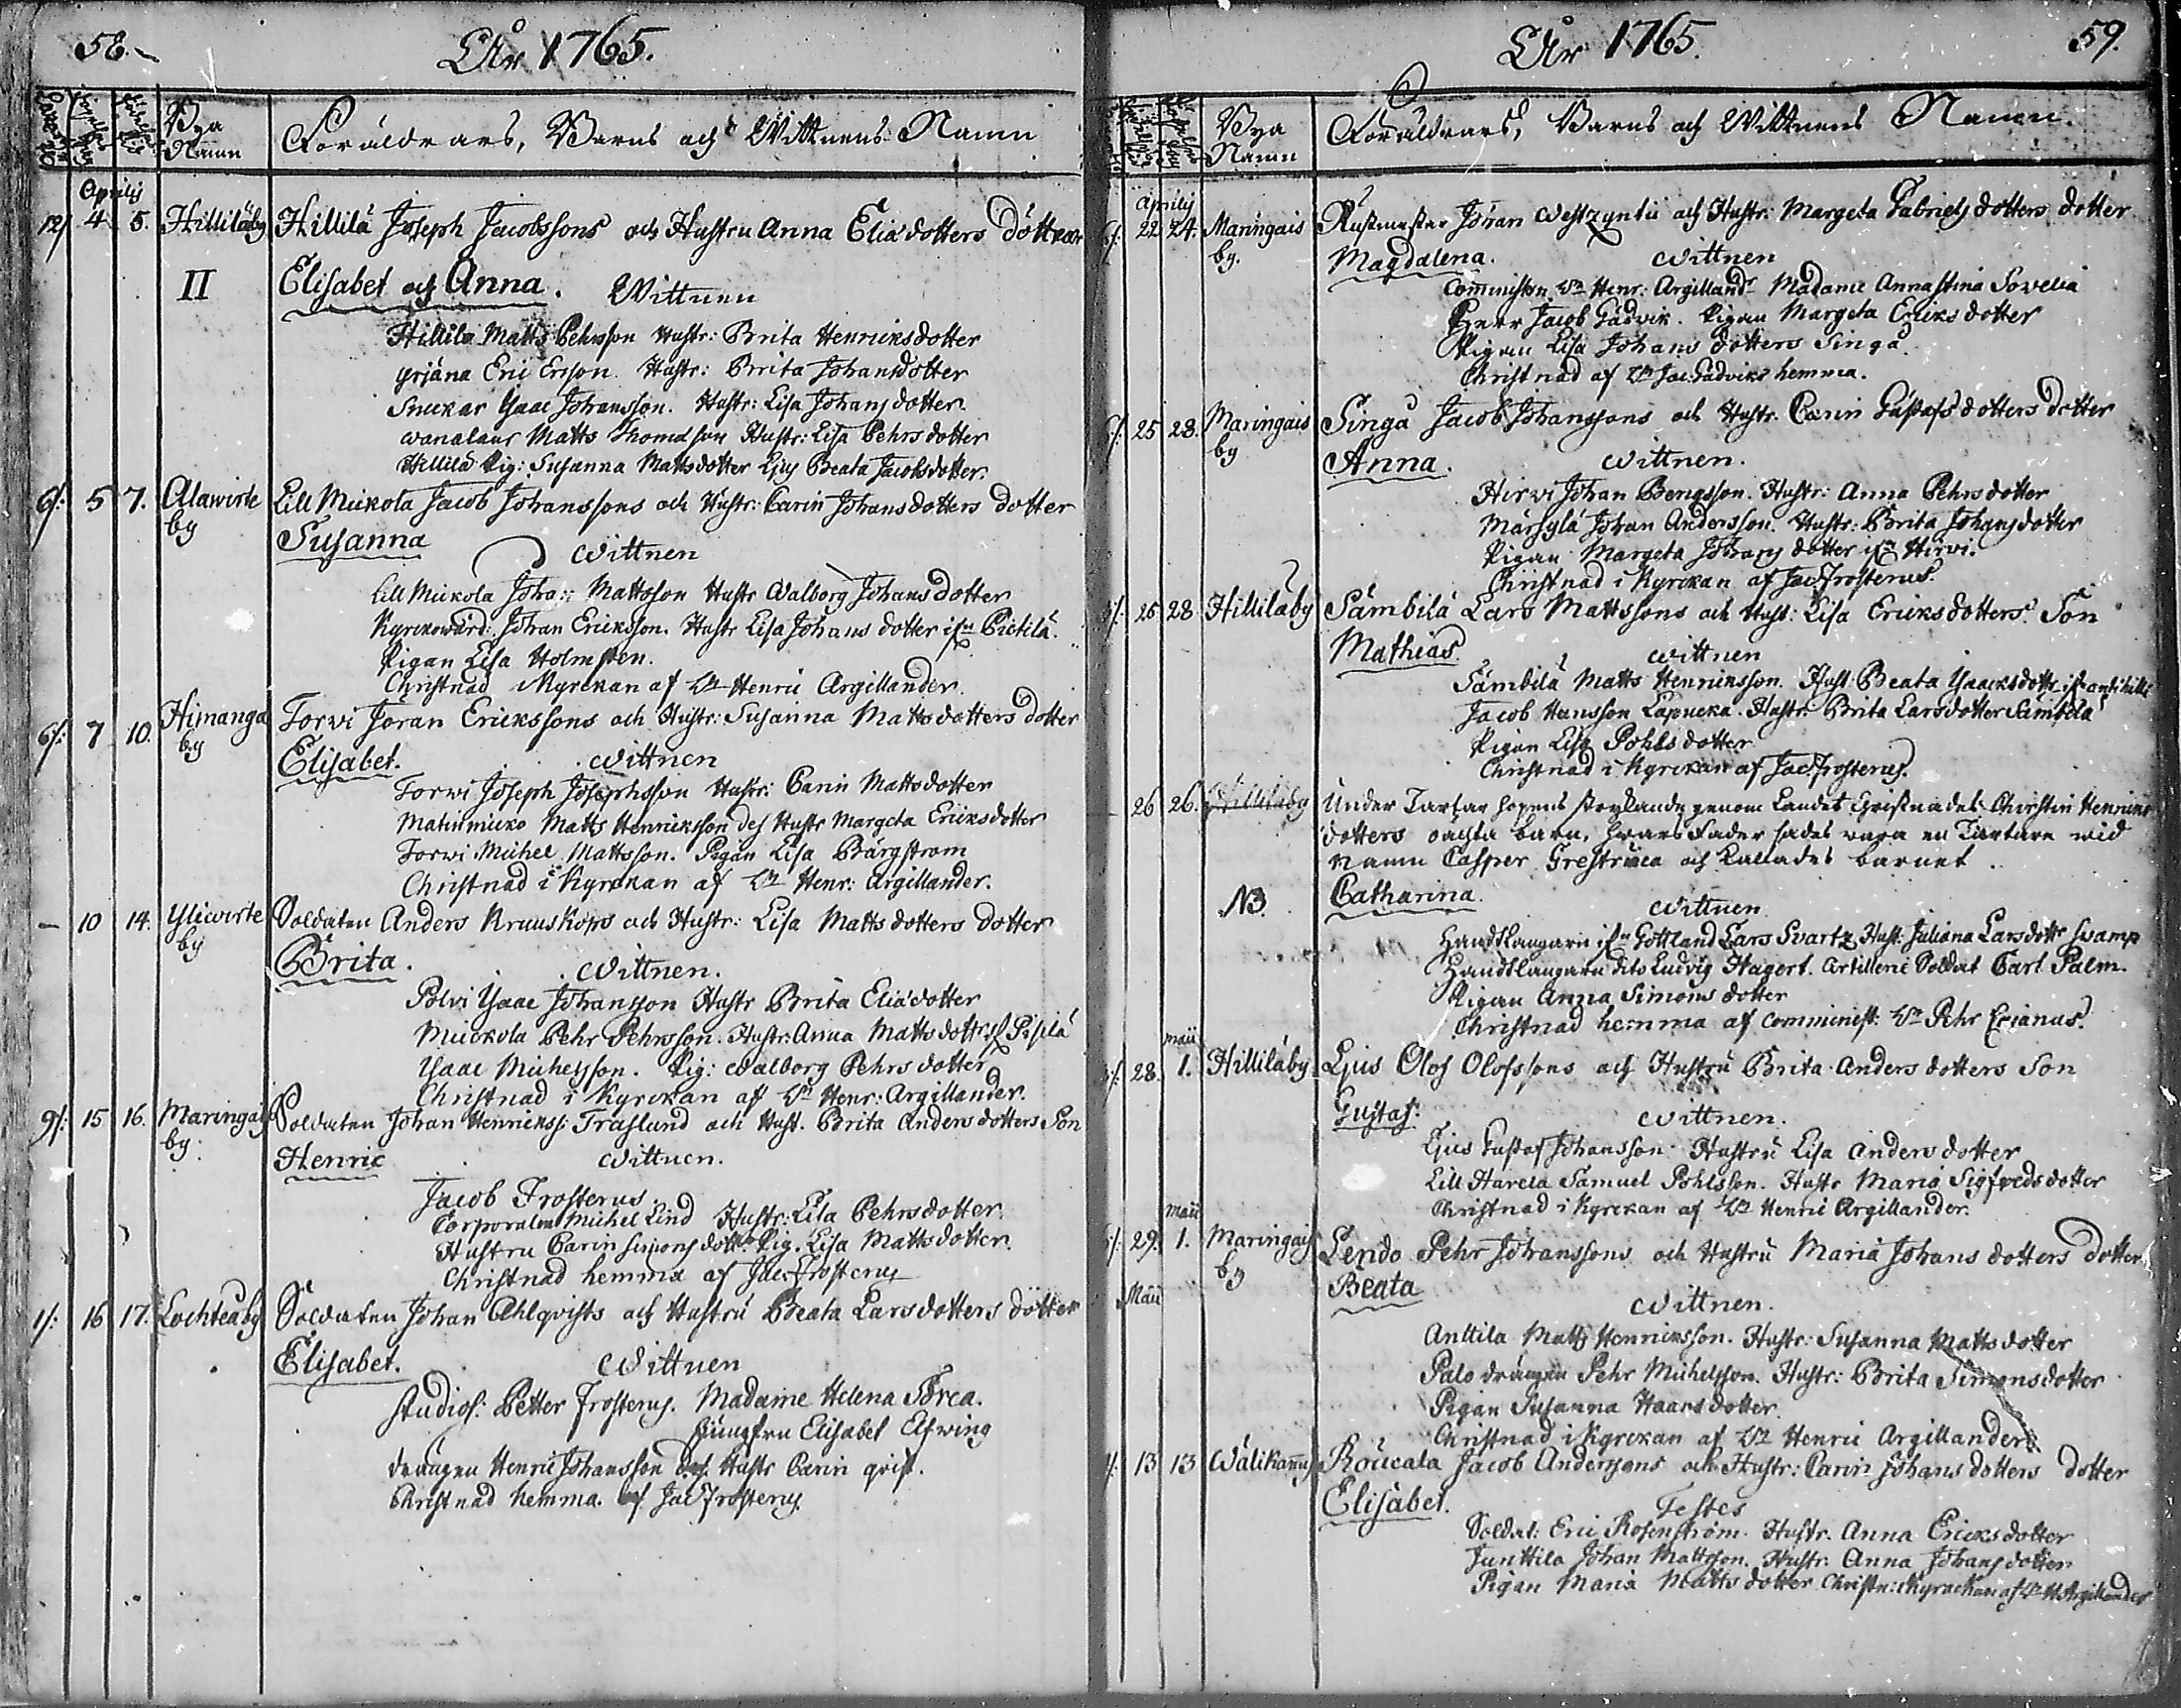 58.
År 1765.
Bya Namn
Föräldrars, Barns och Wittnens Namn
Aprilis
12/ 4 5. Hillilä by Hillilä Joseph Jacobssons och Hustru Anna Eliædotters Döttrar
II Elisabet och Anna. Wittnen
Hillilä Matts Pehrsson Hustr: Brita Henricksdotter
Yrjänä Eric Ersson. Hustr: Brita Johansdotter
Snickar Ysaac Johansson. Hustr: Lisa Johansdotter.
Matts Thomasson Hustr: Lisa Pehrsdotter
Hillilä Pig: Susanna Mattsdotter Ljus Beata Jacobsdotter.
6/: 5 7. Alawirte by Lill Mickola Jacob Johanssons och Hustr: Carin Johansdotters dotter
Susanna Wittnen
Lill Mickola Johan Mattsson Hustr Walborg Johansdotter
Kyrckoward: Johan Ericksson. Hustr Lisa Johans dotter ifn Pietilä.
Pigan Lisa Holmsten.
Christnad i Kyrckan af Hr Henric Argillander.
6/: 7 10. Himanga by Torvi Jöran Erickssons och Hustr: Susanna Mattsdotters dotter
Elisabet. Wittnen
Torwi Joseph Josephsson Hustr: Carin Mattsdotter
Matinmicko Matts Henricksson des Hustr Margeta Ericksdotter
Torwi Michel Mattsson. Pigan Lisa Bärgström
Christnad i Kyrckan af Hr Henr: Argillander.
— 10 14. Yliwirte by Soldaten Anders Kruuskops och Hustr: Lisa Matts dotters dotter
Brita. Wittnen.
Polvi Ysaac Johansson Hustr Brita Eliædotter
Mickola Pehr Pehrsson. Hustr: Anna Mattsdottr if Pispä
Ysaac Michelsson. Pig: Walborg Pehrs dotter
Christnad i Kyrckan af Hr Henr: Argillander.
9/: 15 16. Maringais by. Soldaten Johan Henrickss: Träflund och Hust. Brita Anders dotters Son
Henric Wittnen.
Jacob Frosterus.
Corporalen Michel Lind Hustr: Lisa Pehrsdotter
Hustru Carin Simons dottr. Pig. Lisa Mattsdotter.
Christnad hemma af Jac: Frosterus
1/: 16 17. Lochteå by Soldaten Johan Ahlqvists och Hustru Beata Larsdotters dotter
Elisabet. Wittnen
Studios: Petter Frosterus. Madame Helena Forea.
Jungfru Elisabet Elfwing
Drängen Henric Johansson des Hustr Carin qvist.
Christnad hemma. af Jac Frosterus
År 1765.
59.
Bya Namn
Föräldrars, Barns och Wittnens Namn.
Aprilis
6/: 22 24. Maringais by. Rustmästar Jöran Westzynti och Hustr: Margeta Gabriels dotters dotter.
Magdalena. Wittnen
Comministern Hr Henr: Argillandr Madame Anna Stina Sovelia
Herr Jacob Gådvik. Pigan Margeta Ericks dotter
Pigan Lisa Johans dotters Singå.
Christnad af Hr Jac: Gådviks hemma.
6/: 25 28. Maringais by Singå Jacob Johanssons och Hustr. Carin Gustafs dotters dotter
Anna. Wittnen.
Hirvi Johan Bengsson. Hustr: Anna Pehrsdotter
Märsylä Johan Andersson. Hustr: Brita Johansdotter
Pigan Margeta Johans dotter ifn Hirvi.
Christnad i Kyrckan af Jac Frosterus.
25 28 Hillilä by Sämbilä Lars Mattssons och Hust: Lisa Ericksdotters Son
Mathias. Wittnen
Sämbilä Matts Henricksson. Hust. Beata Ysaacksdotter
Jacob Hansson Lapucka. Hustr. Brita Larsdotter Sämbilä
Pigan Lisa Pohlsdotter
Christnad i Kyrckan af Jac. Frosterus.
26 26. Hillilä by Under Tartarhopens strykande genom Landet Christnades Christin Henricks
dotters oächta barn, hvars Fader sades vara en Tartare wid
namn Casper Grestruca och kallades barnet
NB. Catharina. Wittnen
Handtlangaren ifn Gottland Lars Svartz Hust: Juliana Larsdottr Svamp
Handtlangaren dito Ludvig Hagert. Artillerie Soldat Carl Palm.
Pigan Anna Simons dotter
Christnad hemma af Comminist: Hr Pehr Erianus.
Maii
28. 1. Hillilä by Ljus Olof Olofssons och Hustru Brita Anders dotters Son
Gustaf. Wittnen.
Ljus Gustaf Johansson Hustru Lisa Andersdotter
Lill Harcla Samuel Pohlsson. Hustr Maria Sigfredsdotter
Christnad i Kyrckan af Hr Henric Argillander.
Maii
29. 1. Maringais by Lendo Pehr Johanssons och Hustru Maria Johans dotters dotter
Beata Wittnen.
Maii
Anttila Matts Henricksson. Hustr: Susanna Mattsdotter
Palo drängen Pehr Michelsson. Hustr: Brita Simonsdotter
Pigan Susanna Haansdotter.
Christnad i Kyrckan af Hr Henric Argillander.
13 13 Wälikannu Röucala Jacob Anderssons och Hustr: Carin Johans dotters dotter
Elisabet. Testes
Soldat: Eric Rosenström. Hustr. Anna Ericksdotter
Junttila Johan Mattsson. Hustr. Anna Johansdotter
Pigan Maria Matts dotter Christn: i Kyrckan af Hr H. Argillander